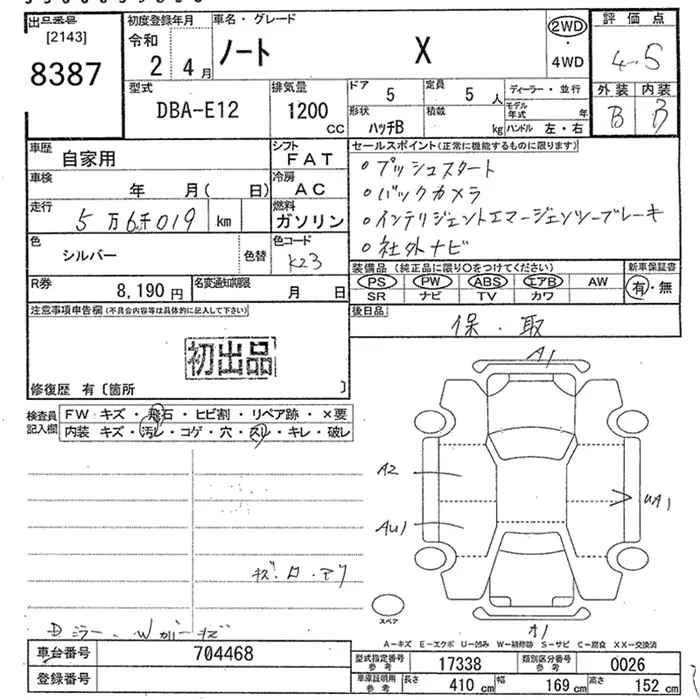 出品番号
[2143]
8387
初度登録年月
令和
2 4 月
車名・グレード
ノート X
2WD
・
4WD
評価点
4-5
外装 内装
B B
型式
DBA-E12
排気量
1200
cc
ドア
5
定員
5 人
形状
ハッチB
積載
kg
ディーラー・並行
モデル年式 年
ハンドル 左・右
車歴
自家用
シフト
FAT
車検 年 月( 日)
冷房
AC
走行 5万6千019 km
燃料
ガソリン
色
シルバー
色替
色コード
K23
R券
8,190 円
名変通知期限
月 日
セールスポイント(正常に機能するものに限ります)
・プッシュスタート
・バックカメラ
・インテリジェントエマージェンシーブレーキ
・社外ナビ
装備品 (純正品に限り○をつけてください)
PS PW ABS エアB AW
SR ナビ TV カワ
新車保証書
有・無
後日品
保・取
注意事項申告欄(不具合内容等は具体的に記入して下さい)
初出品
修復歴 有〔箇所 〕
検査員
記入欄
FW キズ・飛石・ヒビ割・リペア跡・×要
内装 キズ・汚レ・コゲ・穴・スレ・キレ・破レ
A1
A2
AU1
UA1
スペア
A―キズ E―エクボ U―凹み W―補修跡 S―サビ C―腐食 XX―交換済
車台番号 704468
登録番号
型式指定番号
参考
17338
類別区分番号
参考
0026
車庫証明用
参考
長さ 410 cm 幅 169 cm 高さ 152 cm